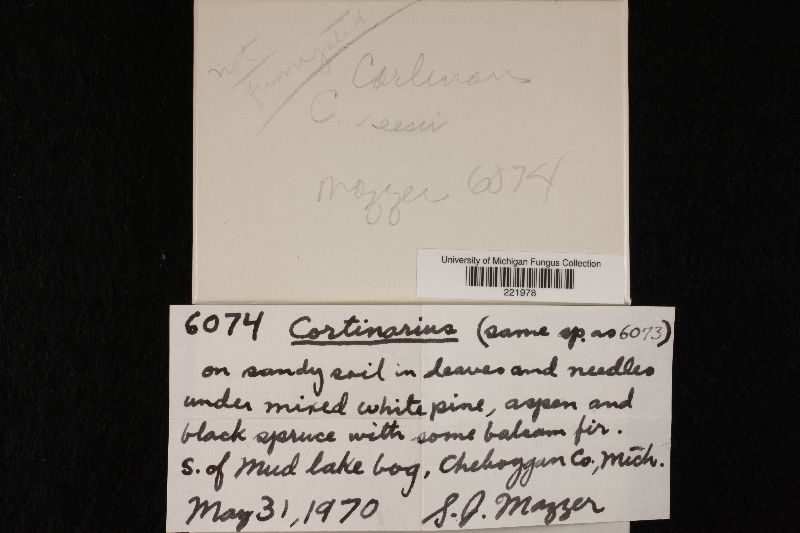 not
fumigated
Cortinari
C.
Mazzer 6074
University of Michigan Fungus Collection
221978
6074 Cortinarius (same sp. as 6073)
on sandy soil in leaves and needles
under mixed white pine, aspen and
black spruce with some balsam fir.
S. of Mud lake bog, Cheboygan Co., Mich.
May 31, 1970 S. J. Mazzer